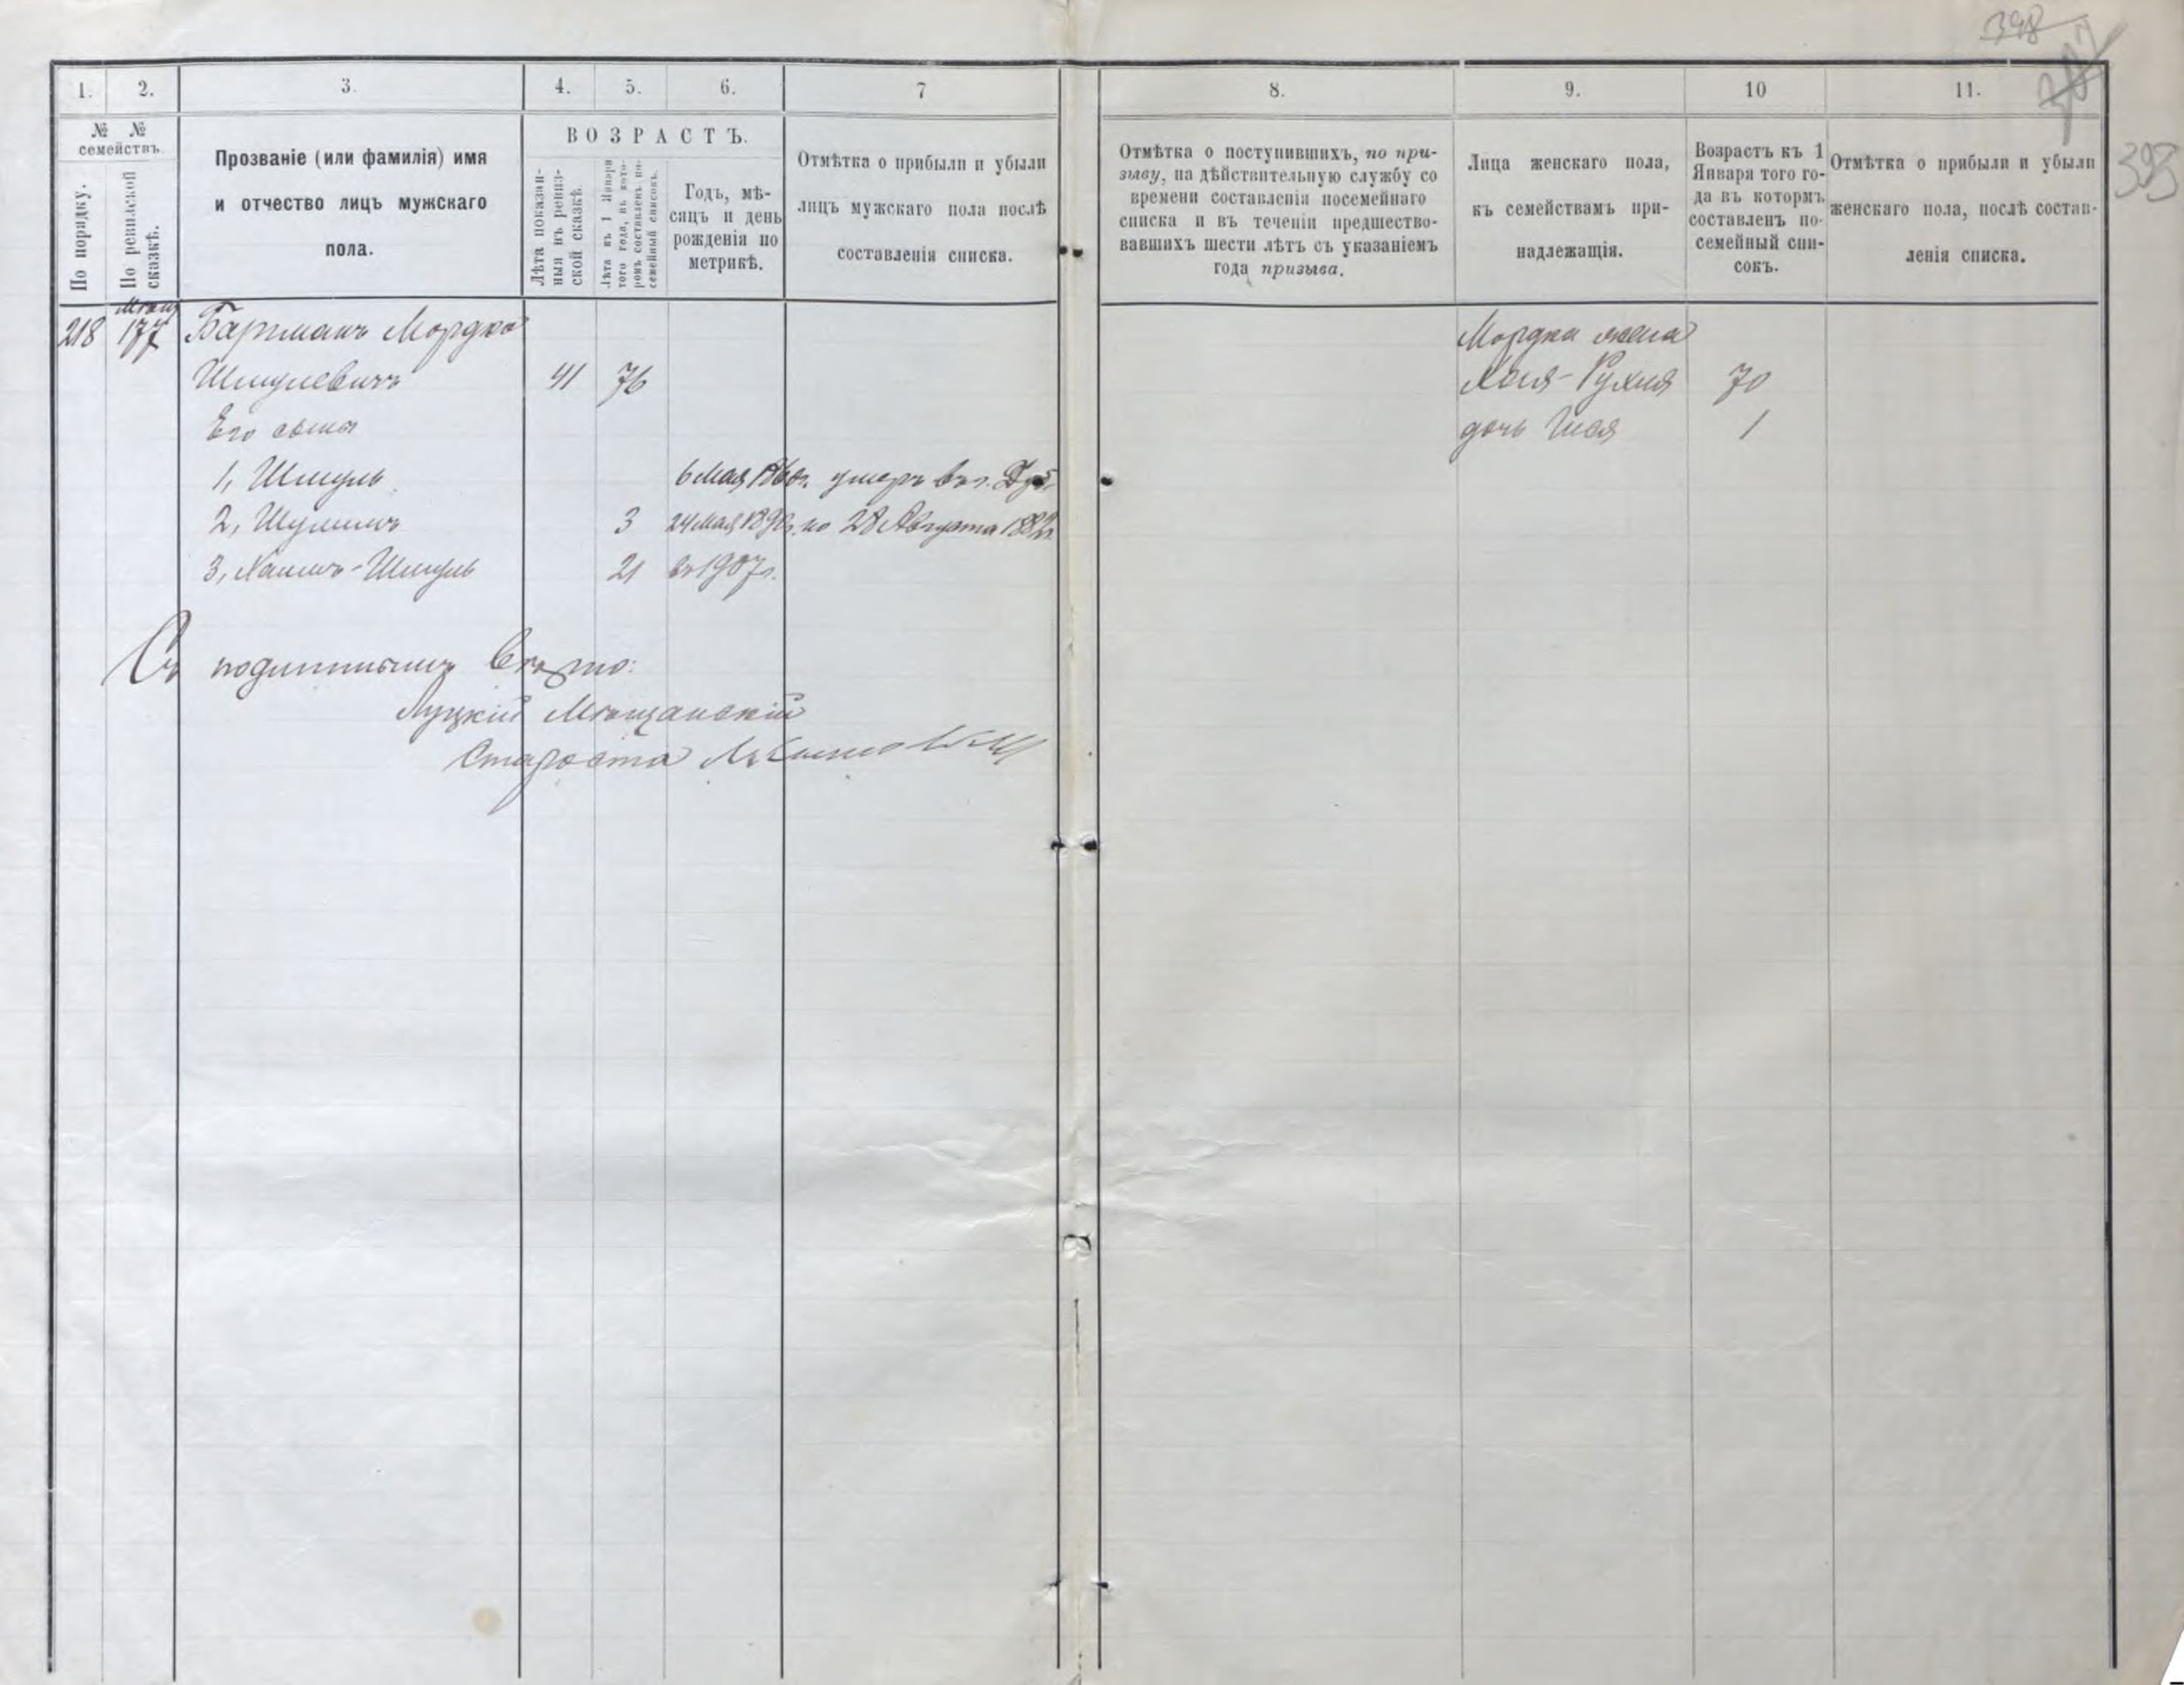 398
393
1. 2. 3. 4. 5. 6. 7 8. 9. 10 11.
№ № семействъ.
По порядку.
По ревизской сказкѣ.
Прозваніе (или фамилія) имя
и отчество лицъ мужскаго
пола.
ВОЗРАСТЪ.
Лѣта показан-
ныя въ ревиз-
ской сказкѣ.
Лѣта въ 1 Января
того года, въ кото-
ромъ составленъ по-
семейный списокъ.
Годъ, мѣ-
сяцъ и день
рожденія по
метрикѣ.
Отмѣтка о прибыли и убыли
лицъ мужскаго пола послѣ
составленія списка.
Отмѣтка о поступившихъ, по при-
зыву, на дѣйствительную службу со
времени составленія посемейнаго
списка и въ теченіи предшество-
вавшихъ шести лѣтъ съ указаніемъ
года призыва.
Лица женскаго пола,
къ семействамъ при-
надлежащія.
Возрастъ къ 1
Января того го-
да въ котормъ
составленъ по-
семейный спи-
сокъ.
Отмѣтка о прибыли и убыли
женскаго пола, послѣ состав-
ленія списка.
Мѣщ
218 177 Барманъ Мордко Мордка жена
Шмулевичъ 41 76 Хая-Рухля 70
Его сыны дочь 1
1, Шмуль 6 Мая умеръ въ г.
2, Шулимъ 3 24 Мая по 28 Августа
3, Хаимъ-Шмуль 21 въ 1907 г.
Съ подлиннымъ вѣрно:
Луцкій Мѣщанскій
Староста